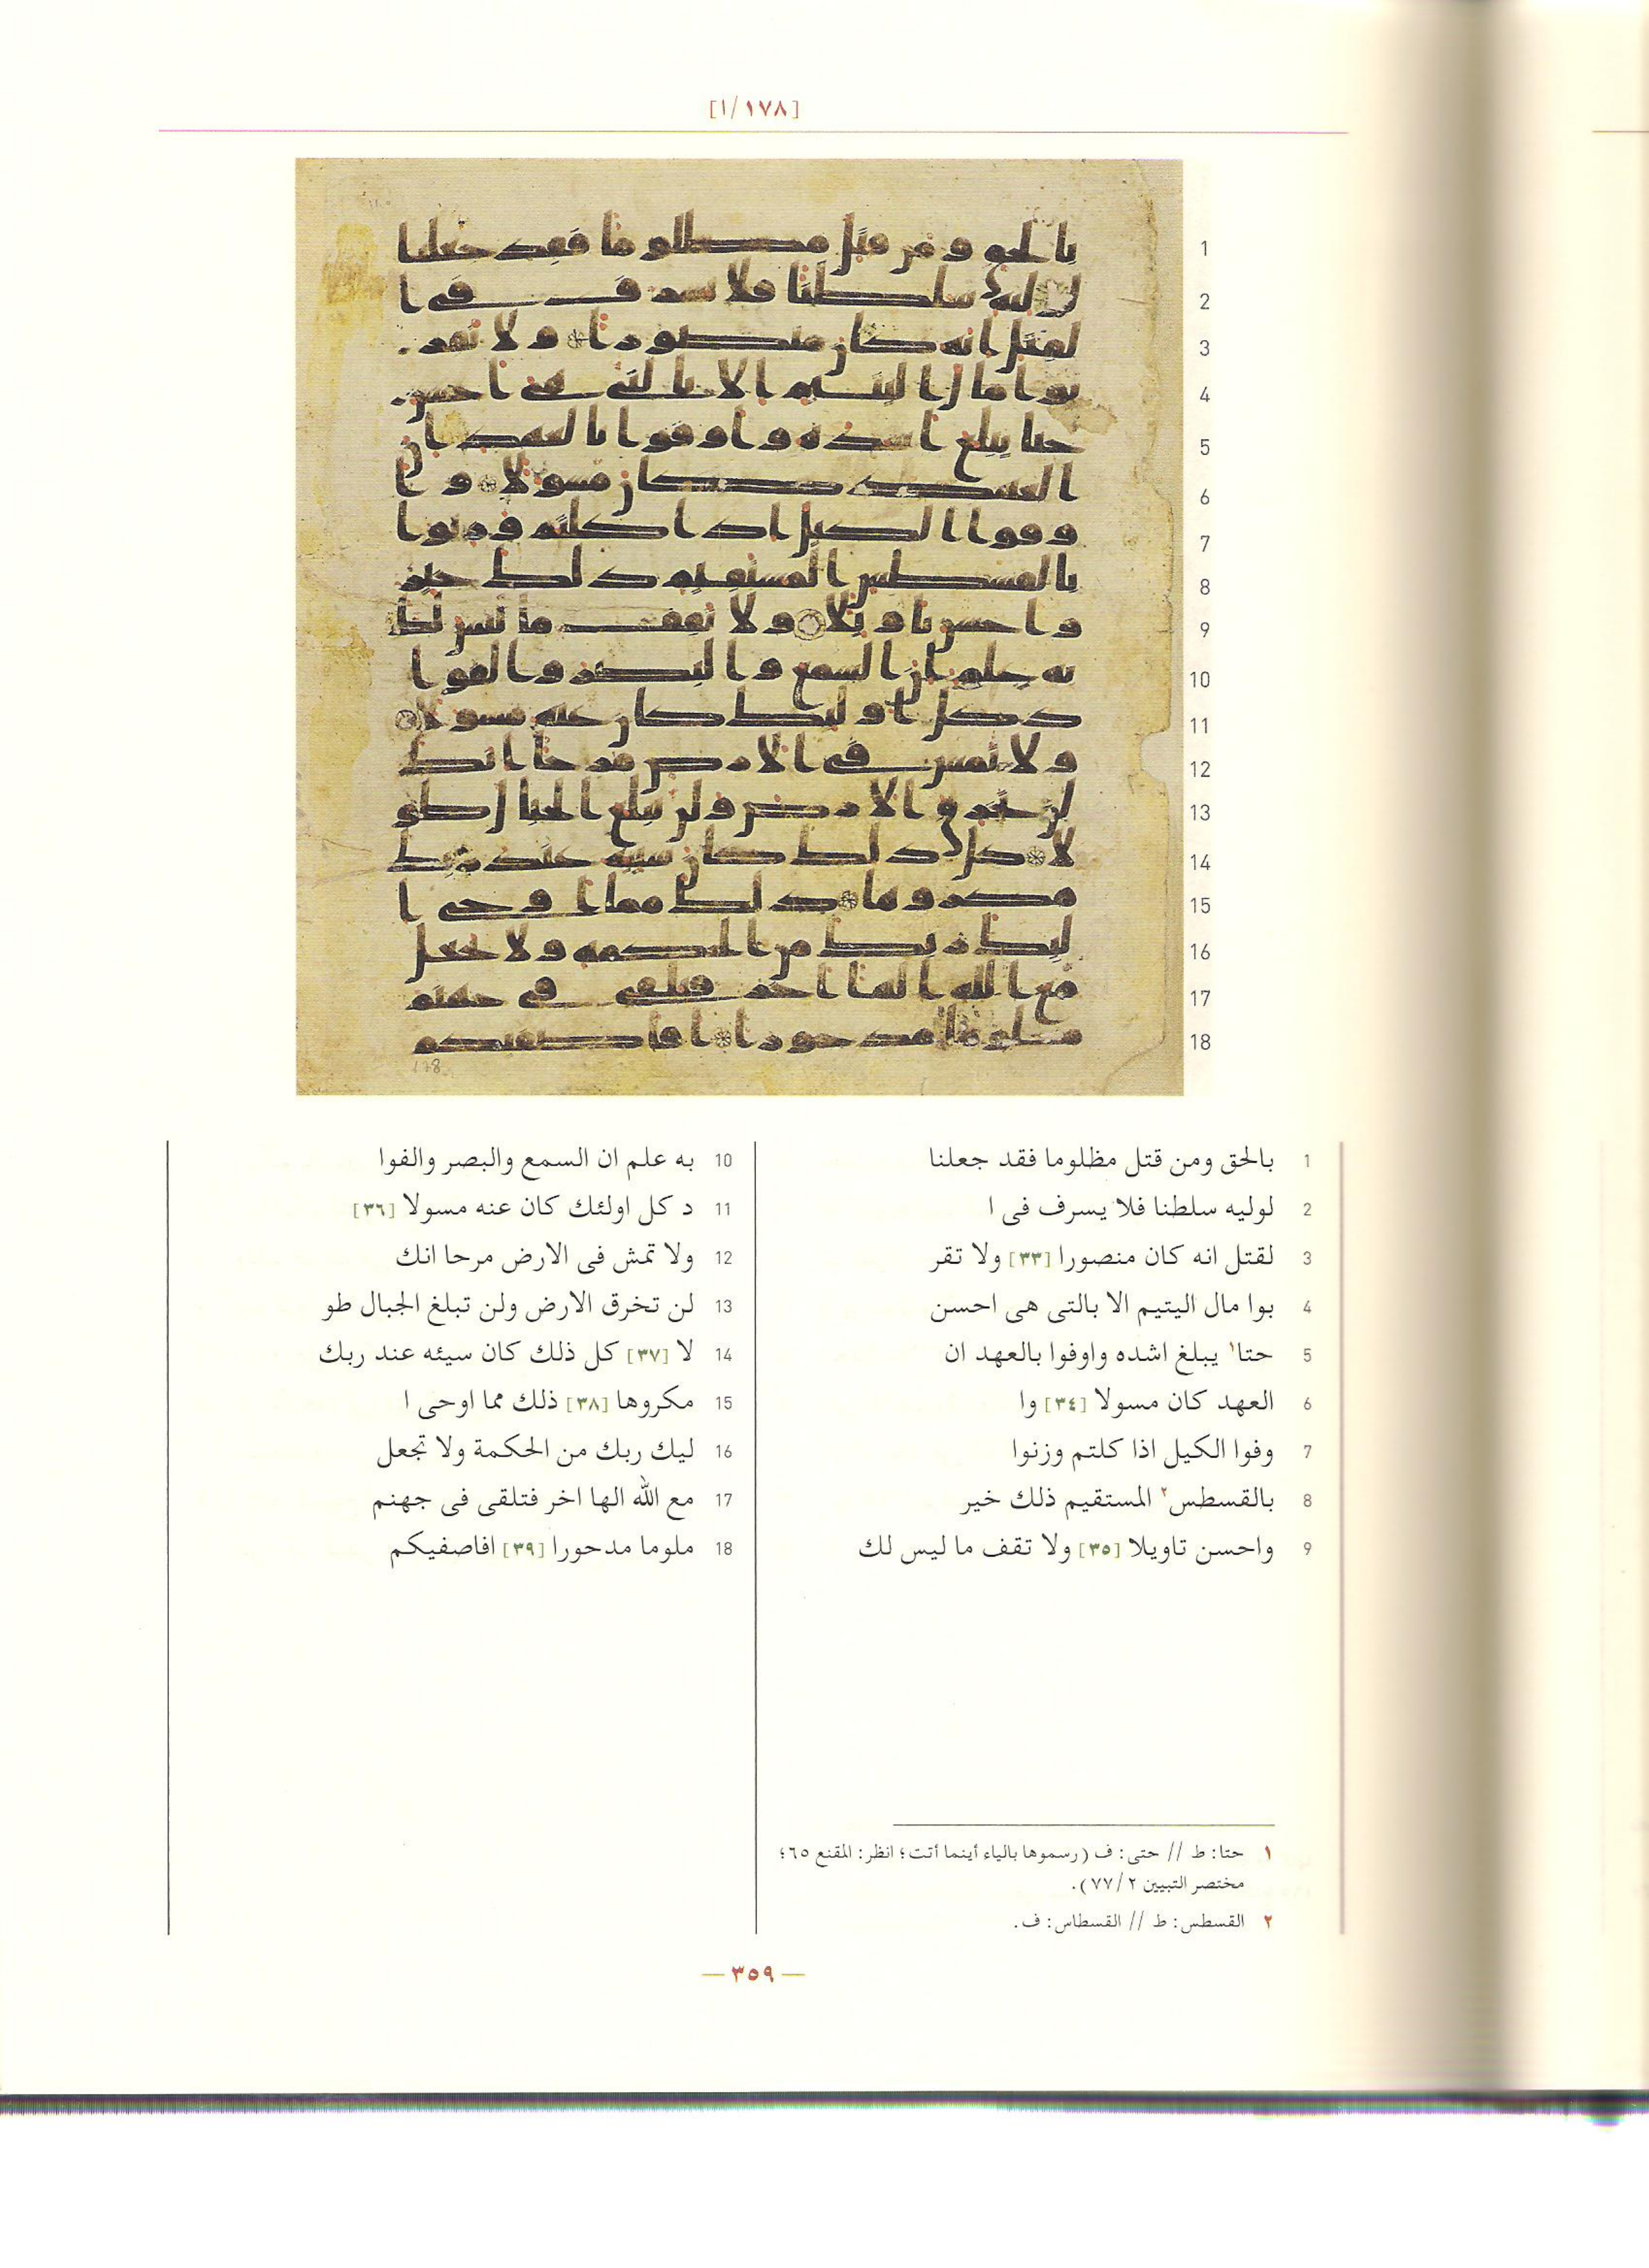 [١/١٧٨]
1 بالحق ومن قتل مظلوما فقد جعلنا
2 لوليه سلطنا فلا يسرف فى ا
3 لقتل انه كان منصورا [٣٣] ولا تقر
4 بوا مال اليتيم الا بالتى هى احسن
5 حتا١ يبلغ اشده واوفوا بالعهد ان
6 العهد كان مسولا [٣٤] وا
7 وفوا الكيل اذا كلتم وزنوا
8 بالقسطس٢ المستقيم ذلك خير
9 واحسن تاويلا [٣٥] ولا تقف ما ليس لك
10 به علم ان السمع والبصر والفوا
11 د كل اولئك كان عنه مسولا [٣٦]
12 ولا تمش فى الارض مرحا انك
13 لن تخرق الارض ولن تبلغ الجبال طو
14 لا [٣٧] كل ذلك كان سيئه عند ربك
15 مكروها [٣٨] ذلك مما اوحى ا
16 ليك ربك من الحكمة ولا تجعل
17 مع الله الها اخر فتلقى فى جهنم
18 ملوما مدحورا [٣٩] افاصفيكم
١ حتا: ط // حتى: ف (رسموها بالياء أينما أتت؛ انظر: المقنع ٦٥؛
مختصر التبيين ٧٧/٢).
٢ القسطس: ط // القسطاس: ف.
— ٣٥٩ —